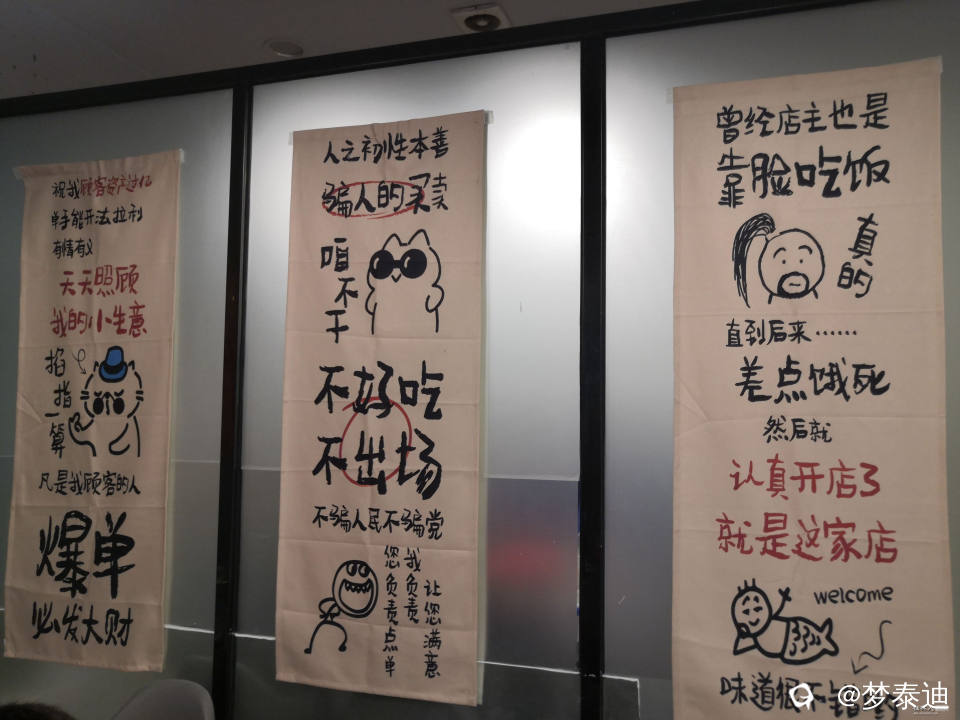 祝我顾客资产过亿
单手能开法拉利
有情有义
天天照顾
我的小生意
掐指一算
凡是我顾客的人
爆单
必发大财
人之初性本善
骗人的买卖
咱不干
不好吃
不出场
不骗人民不骗党
您负责点单
我负责
让您满意
曾经店主也是
靠脸吃饭
真的
直到后来……
差点饿死
然后就
认真开店了
就是这家店
welcome
味道很不错
@梦泰迪